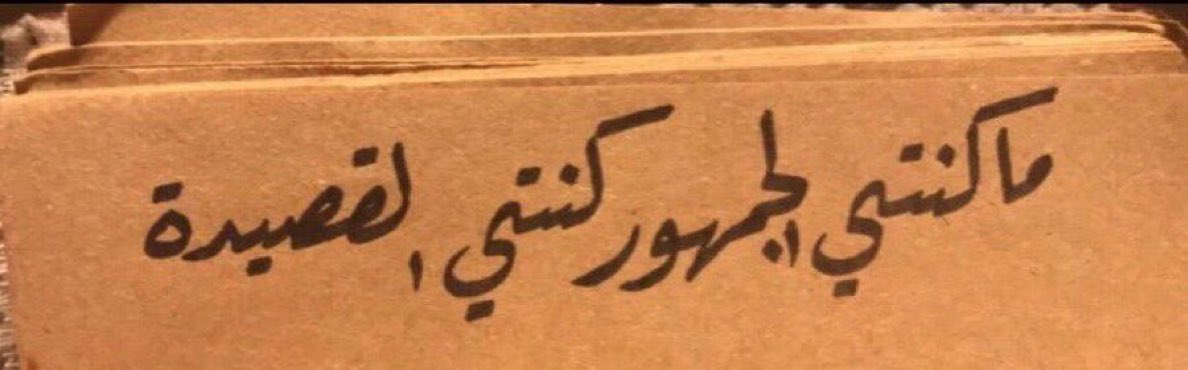 ما كنتي الجمهور كنتي القصيدة